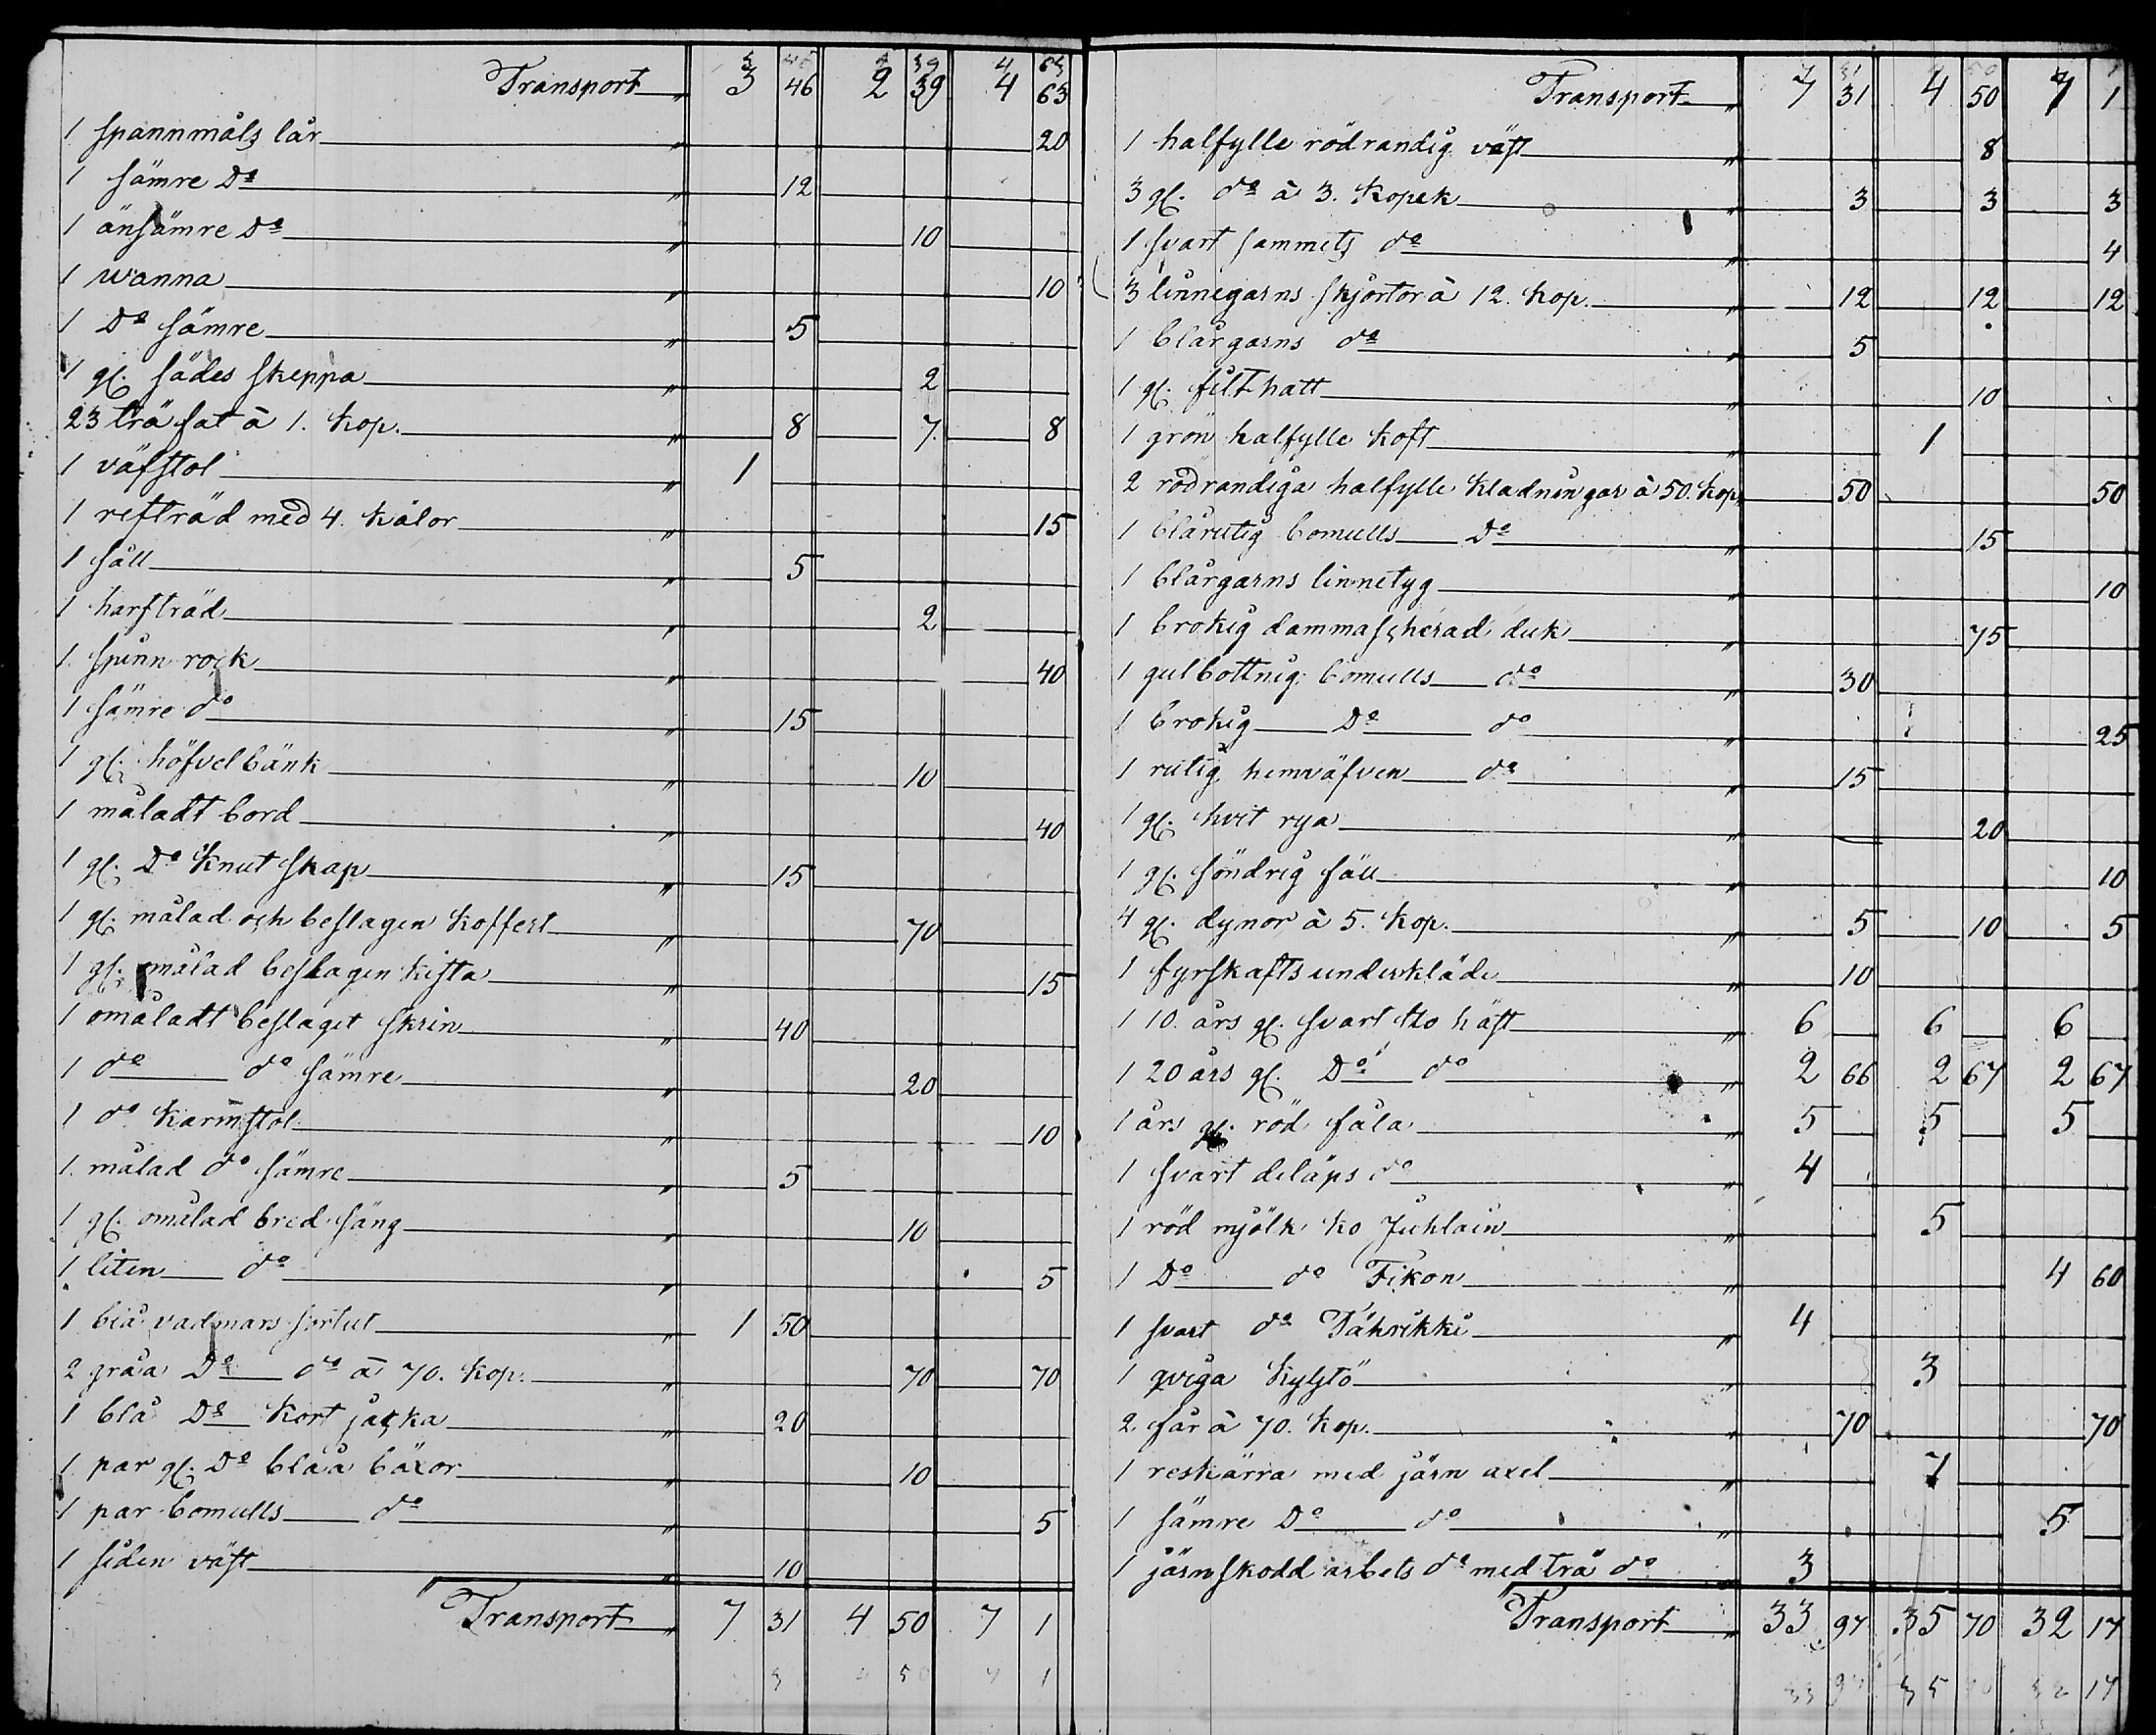 Transport 3 46 2 39 4 63
1 spannmåls lår 20
1 sämre Do 12
1 änsämre Do 10
1 wanna 10
1 Do sämre 5
1 gl. sädes skeppa 2
23 trä fat à 1. Kop. 8 7 8
1 väfstol 1
1 refträd med 4. Kålor 15
1 såll 5
1 harfträd 2
1 spinn rock 40
1 sämre do 15
1 gl. höfvelbänk 10
1 måladt bord 40
1 gl. Do Knut skap 15
1 gl. målad och beslagen Koffert 70
1 gl. målad beslagen Kista 15
1 omåladt beslaget skrin 40
1 do do sämre 20
1 do Karmstol 10
1 målad do sämre 5
1 gl. omålad bred säng 10
1 liten do 5
1 blå vadmars sortut 1 50
2 gråa Do do à 70. Kop. 70 70
1 blå Do Kort jacka 20
1 par gl. Do blåa bäxor 10
1 par bomulls do 5
1 siden väst 10
Transport 7 31 4 50 7 1
Transport 7 31 4 50 7 1
1 halfylle rödrandig väst 8
3 gl. do à 3. Kopek 3 3 3
1 svart sammets do 4
3 linnegarns skjortor à 12. Kop. 12 12 12
1 blårgarns do 5
1 gl. filt hatt 10
1 grön halfylle Koft 1
2 rödrandiga halfylle Kladningar à 50. Kop. 50 50
1 blårutig bomulls Do 15
1 blårgarns linnetyg 10
1 brokig dammascherad duk 75
1 gulbottnig bomulls do 30
1 brokig Do do 25
1 rutig hemväfven do 15
1 gl. hvit rya 20
1 gl. söndrig fäll 10
4 gl. dynor à 5. Kop. 5 10 5
1 fyrskafts underkläde 10
1 10. års gl. svart sto häst 6 6 6
1 20 års gl. Do do 2 66 2 67 2 67
1 års gl. röd fåla 5 5 5
1 svart deläps do 4
1 röd mjölk ko Juhlain 5
1 Do do Fikon 4 60
1 svart do Tährikki 4
1 qviga Kyljtö 3
2 får à 70. Kop. 70 70
1 reskärra med järn axel 7
1 sämre Do do 5
1 järnskodd arbets do med trä do 3
Transport 33 97 35 70 32 17